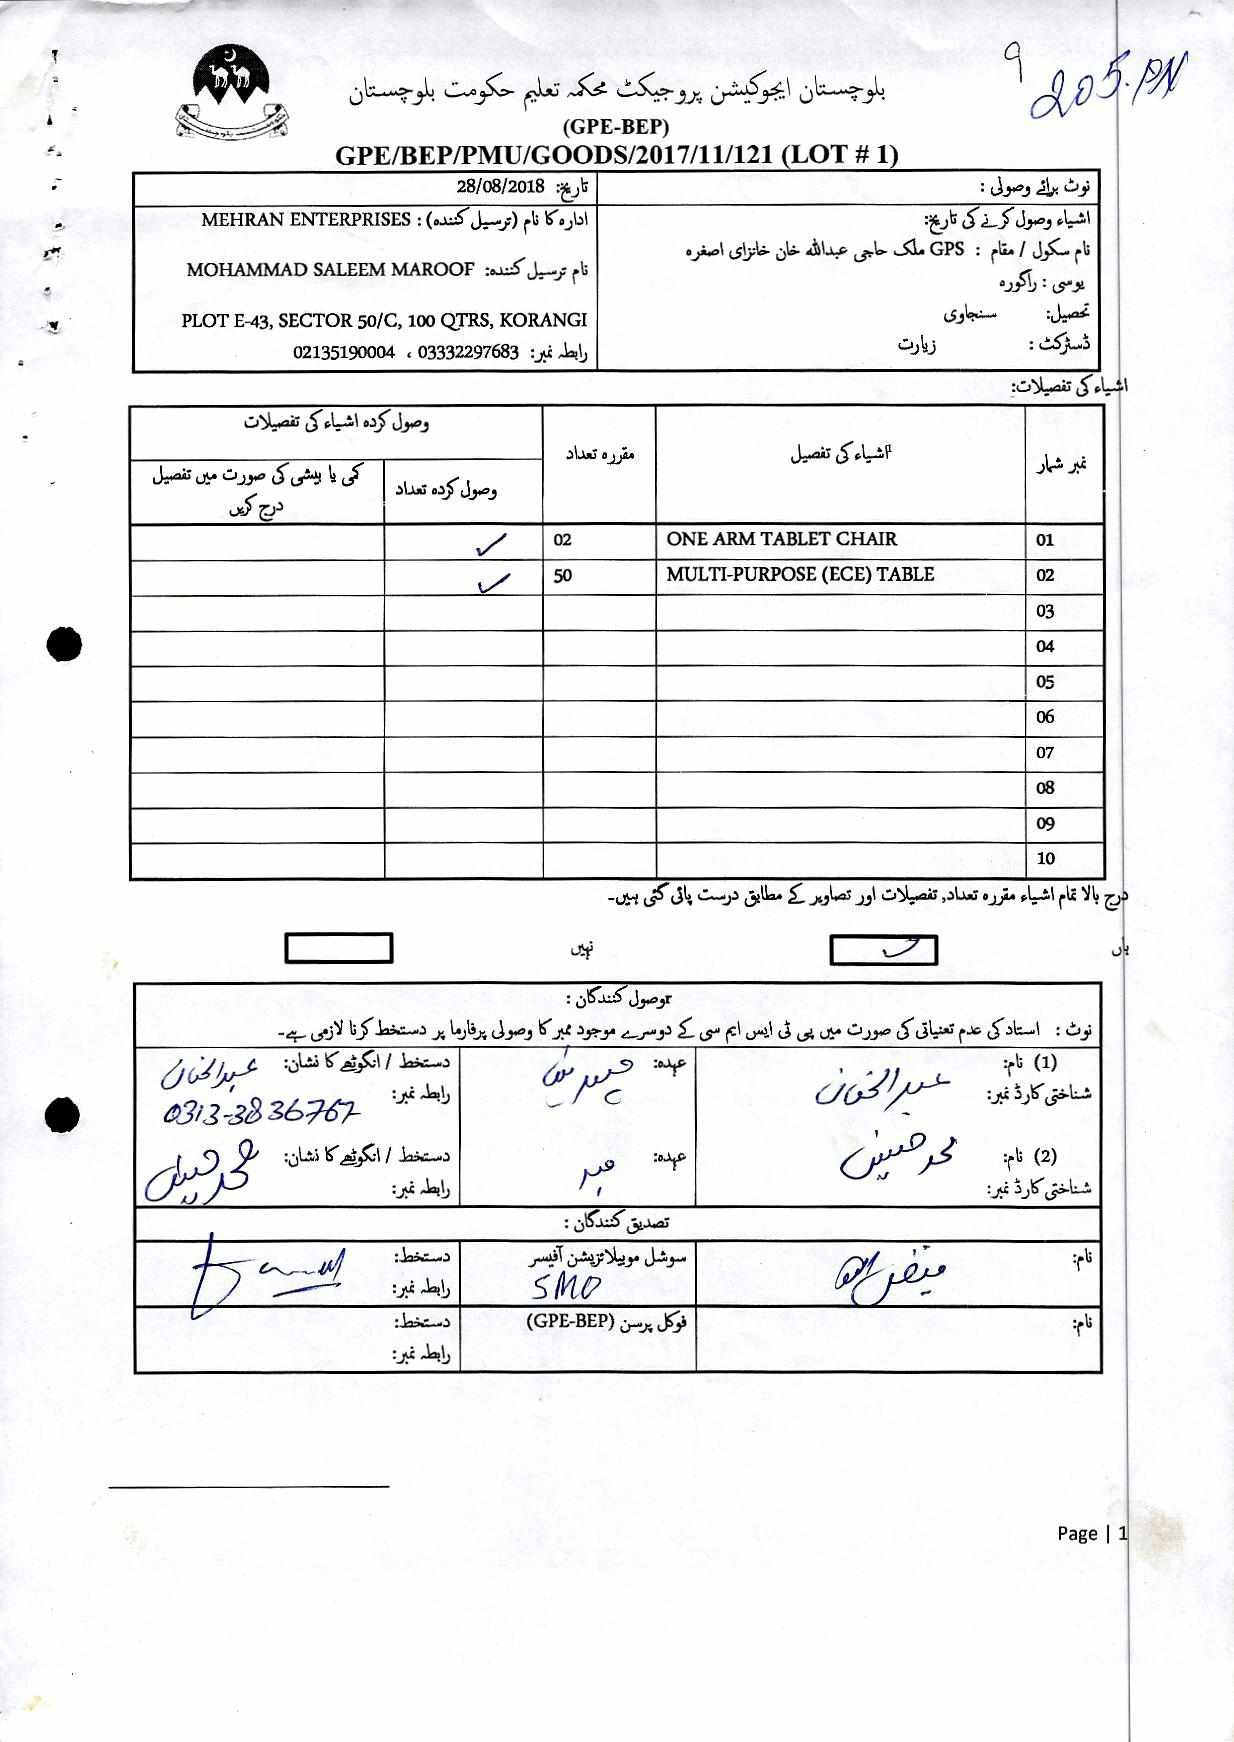 9
205.PN
بلوچستان ایجوکیشن پروجیکٹ محکمہ تعلیم حکومت بلوچستان
(GPE-BEP)
GPE/BEP/PMU/GOODS/2017/11/121 (LOT # 1)
نوٹ برائے وصولی :
اشیاء وصول کرنے کی تاریخ:
نام سکول / مقام : GPS ملک حاجی عبداللہ خان خانزای اصغرہ
یوسی : راگورہ
تحصیل: سنجاوی
ڈسٹرکٹ : زیارت
تاریخ: 28/08/2018
ادارہ کا نام (ترسیل کنندہ) : MEHRAN ENTERPRISES
نام ترسیل کنندہ: MOHAMMAD SALEEM MAROOF
PLOT E-43, SECTOR 50/C, 100 QTRS, KORANGI
رابطہ نمبر: 03332297683 ، 02135190004
اشیاء کی تفصیلات:
نمبر شمار اشیاء کی تفصیل مقررہ تعداد وصول کردہ اشیاء کی تفصیلات
وصول کردہ تعداد کمی یا بیشی کی صورت میں تفصیل
درج کریں
01 ONE ARM TABLET CHAIR 02 ✓
02 MULTI-PURPOSE (ECE) TABLE 50 ✓
03
04
05
06
07
08
09
10
درج بالا تمام اشیاء مقررہ تعداد, تفصیلات اور تصاویر کے مطابق درست پائی گئی ہیں۔
ہاں ✓ نہیں
وصول کنندگان :
نوٹ : استاد کی عدم تعنیاتی کی صورت میں پی ٹی ایس ایم سی کے دوسرے موجود ممبر کا وصولی پرفارما پر دستخط کرنا لازمی ہے۔
(1) نام: عبدالخنان عہدہ: دستخط / انگوٹھے کا نشان: عبدالخنان
شناختی کارڈ نمبر: رابطہ نمبر: 0313-3836767
(2) نام: محمد حسین عہدہ: ممبر دستخط / انگوٹھے کا نشان:
شناختی کارڈ نمبر: رابطہ نمبر:
تصدیق کنندگان :
نام: سوشل موبیلائزیشن آفیسر دستخط:
SMO رابطہ نمبر:
نام: فوکل پرسن (GPE-BEP) دستخط:
رابطہ نمبر:
Page | 1